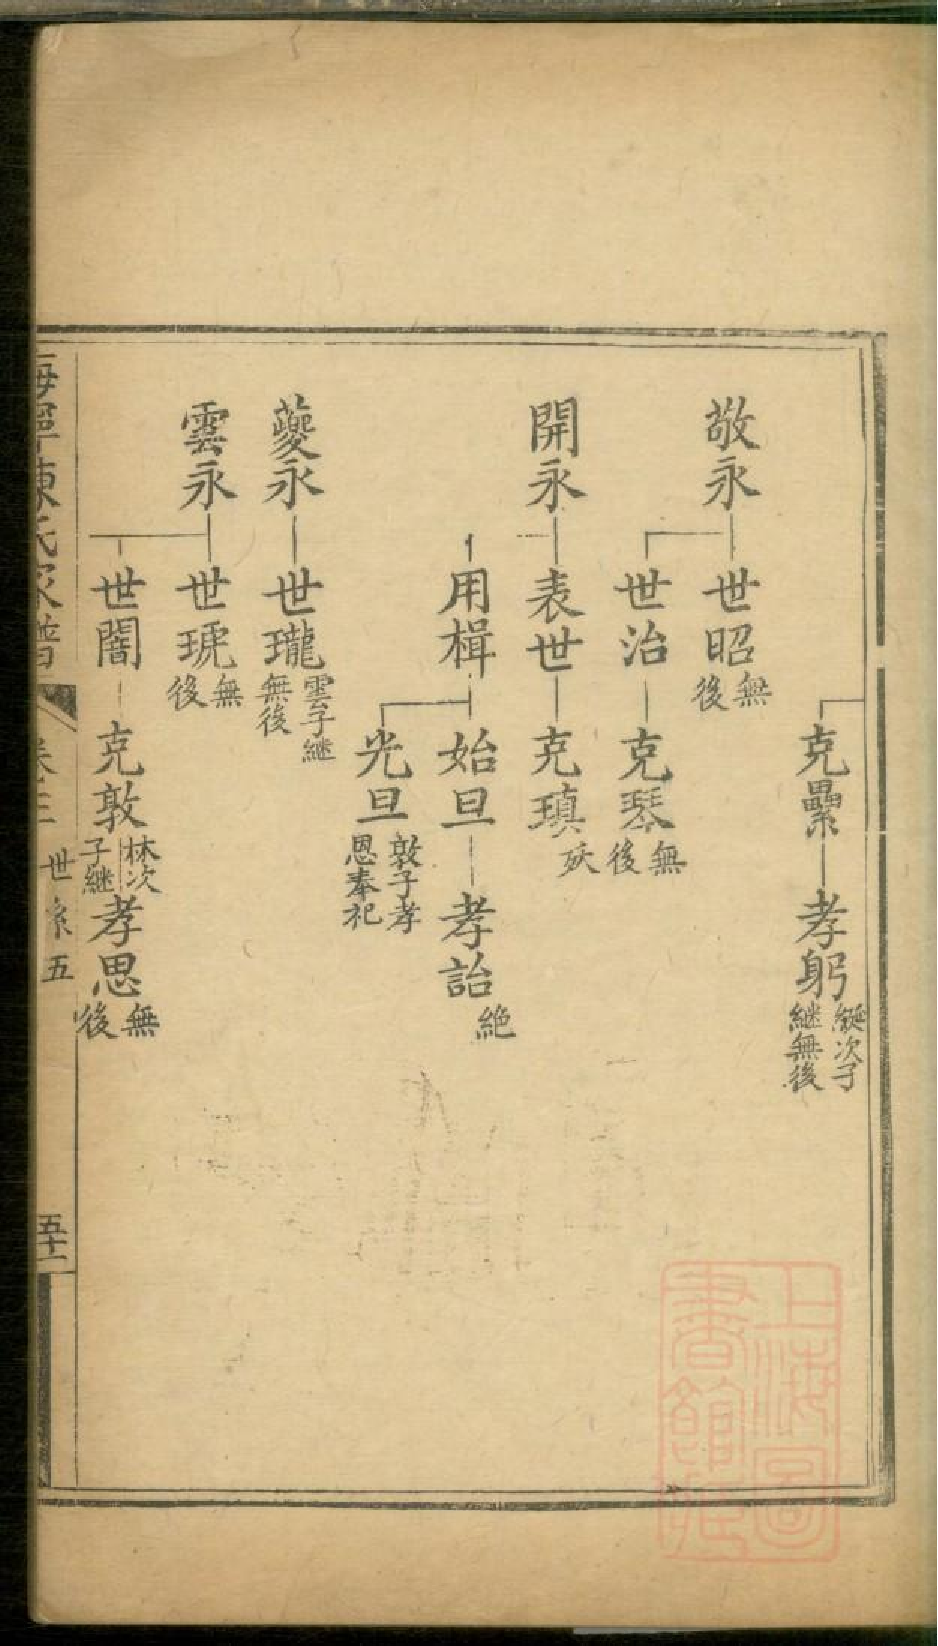 克纍 孝躬 綎次子繼無後
敬永 世昭 無後
世治 克琴 無後
開永 表世 克瑱 殀
用楫 始旦 孝詒 絶
光旦 敦子孝恩奉祀
蘷永 世瓏 雲子継無後
雲永 世琥 無後
世闇 克敦 林次子継 孝思 無後
海寧陳氏家譜 卷三 世系五 五十一
上海圖
書館藏